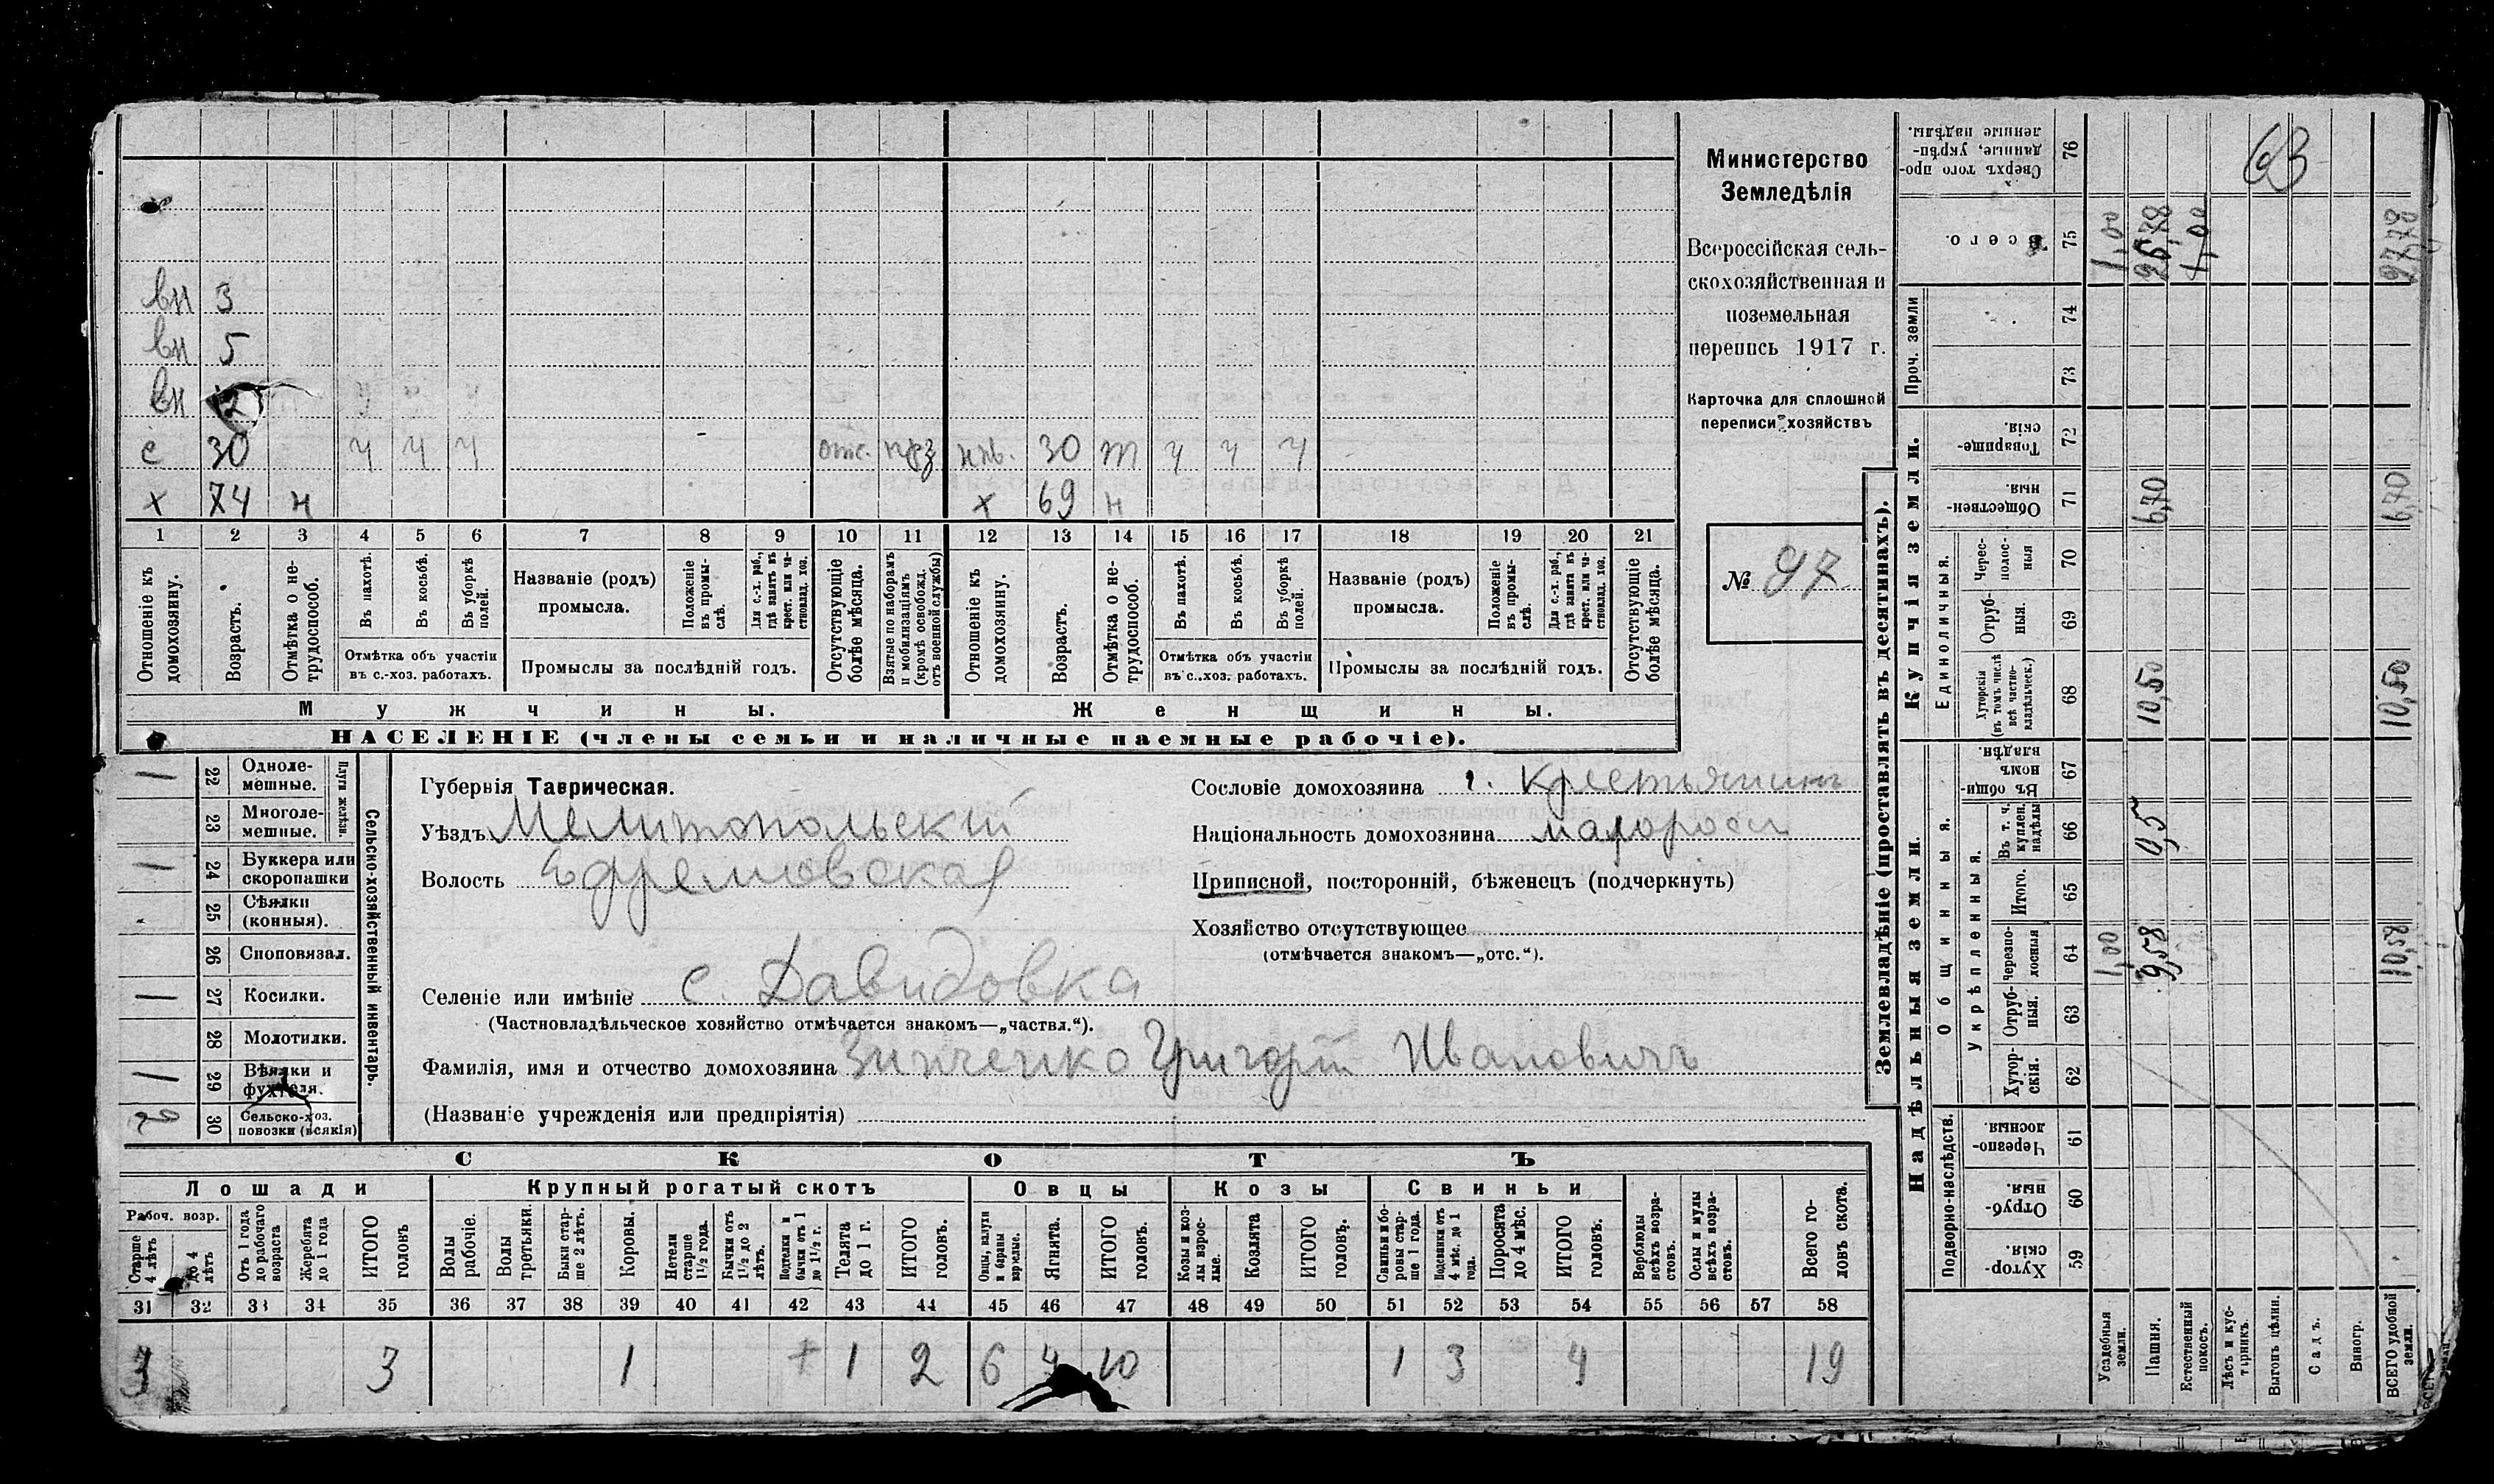 вн 3
вн 5
вн 12
с 30 ч ч ч отс. нпв. 30 т ч ч ч
х 74 н х 69 н
1 2 3 4 5 6 7 8 9 10 11 12 13 14 15 16 17 18 19 20 21
Отношеніе къ домохозяину.
Возрастъ.
Отмѣтка о не-трудоспособ.
Въ пахотѣ.
Въ косьбѣ.
Въ уборкѣ полей.
Отмѣтка объ участіи
въ с.-хоз. работахъ.
Названіе (родъ)
промысла.
Положеніе въ промы-слѣ.
Для с.-х. раб., гдѣ занятъ въ крест. или ча-стновлад. хоз.
Промыслы за послѣдній годъ.
Отсутствующіе болѣе мѣсяца.
Взятые по наборамъ и мобилизаціямъ (кромѣ освобожд. отъ военной службы)
Отношеніе къ домохозяину.
Возрастъ.
Отмѣтка о не-трудоспособ.
Въ пахотѣ.
Въ косьбѣ.
Въ уборкѣ полей.
Отмѣтка объ участіи
въ с.-хоз. работахъ.
Названіе (родъ)
промысла.
Положеніе въ промы-слѣ.
Для с.-х. раб., гдѣ занята въ крест. или ча-стновлад. хоз.
Промыслы за послѣдній годъ.
Отсутствующіе болѣе мѣсяца.
Мужчины.
Женщины.
НАСЕЛЕНІЕ (члены семьи и наличные наемные рабочіе).
Министерство
Земледѣлія
Всероссійская сель-
скохозяйственная и
поземельная
перепись 1917 г.
Карточка для сплошной
переписи хозяйствъ
№ 97
1 22 Одноле-мешные.
23 Многоле-мешные.
Плуги желѣзн.
1 24 Буккера или скоропашки
25 Сѣялки (конныя).
26 Сноповязал.
1 27 Косилки.
28 Молотилки.
1 29 Вѣялки и фухтеля.
2 30 Сельско-хоз. повозки (всякія)
Сельско-хозяйственный инвентарь.
Губернія Таврическая.
Уѣздъ Мелитопольскій
Волость Ефремовская
Селеніе или имѣніе с. Давидовка
(Частновладѣльческое хозяйство отмѣчается знакомъ—„частвл.“).
Фамилія, имя и отчество домохозяина Зинченко Григорій Ивановичъ
(Названіе учрежденія или предпріятія)
Сословіе домохозяина крестьянинъ
Національность домохозяина малоросы
Приписной, посторонній, бѣженецъ (подчеркнуть)
Хозяйство отсутствующее
(отмѣчается знакомъ—„отс.“).
СКОТЪ
Лошади Крупный рогатый скотъ Овцы Козы Свиньи
Рабоч. возр.
Старше 4 лѣтъ
до 4 лѣтъ
Отъ 1 года до рабочаго возраста
Жеребята до 1 года
ИТОГО головъ
Волы рабочіе.
Волы третьяки.
Быки стар-ше 2 лѣтъ.
Коровы.
Нетели старше 1½ года.
Бычки отъ 1½ до 2 лѣтъ.
Подтелки и бычки отъ 1 до 1½ г.
Телята до 1 г.
ИТОГО головъ.
Овцы, валухи и бараны взрослые.
Ягнята.
ИТОГО головъ.
Козы и коз-лы взрос-лые.
Козлята
ИТОГО головъ.
Свиньи и бо-ровы стар-ше 1 года.
Подсвинки отъ 4 мѣс. до 1 года.
Поросята до 4 мѣс.
ИТОГО головъ.
Верблюды всѣхъ возра-стовъ.
Ослы и мулы всѣхъ возра-стовъ.
Всего го-ловъ скота.
31 32 33 34 35 36 37 38 39 40 41 42 43 44 45 46 47 48 49 50 51 52 53 54 55 56 57 58
3 3 1 1 2 6 4 10 1 3 4 19
Землевладѣніе (проставлять въ десятинахъ).
Надѣльныя земли.
Купчія земли.
Проч. земли
Подворно-наслѣдств.
Общинныя.
Укрѣпленныя.
Единоличныя.
Сверхъ того про-данные, укрѣп-ленные надѣлы. 76
63
Всего. 75 1,00 26,78 1,00 27,78
74
73
Товарище-скія. 72
Обществен-ныя. 71 6,70 6,70
Черес-полос-ныя 70
Отруб-ныя. 69
Хуторскія (въ томъ числѣ всѣ частно-владѣльческ.) 68 10,50 10,50
Въ общин-номъ владѣн. 67
Въ т. ч. куплен. надѣлы 66 0,5
Итого. 65
Черезпо-лосныя 64 1,00 9,58 10,58
Отруб-ныя. 63
Хутор-скія. 62
Черезпо-лосныя. 61
Отруб-ныя. 60
Хутор-скія. 59
Усадебныя земли.
Пашня.
Естественный покосъ.
Лѣсъ и кус-тарникъ.
Выгонъ цѣлин.
Садъ.
Виногр.
ВСЕГО удобной земли.